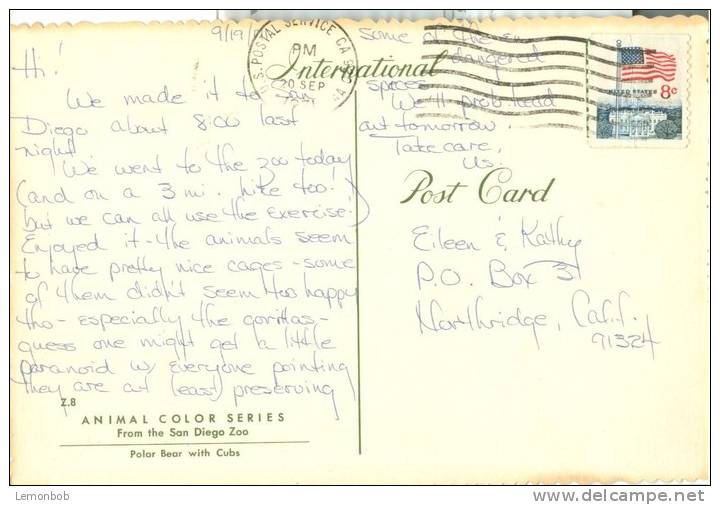 9/19/
Hi!
We made it to San
Diego about 8:00 last
night
We went to the zoo today
(and on a 3 mi. hike too!
but we can all use the exercise!)
Enjoyed it - the animals seem
to have pretty nice cages - some
of them didn't seem too happy
tho - especially the gorillas -
guess one might get a little
paranoid w/ everyone pointing
they are at least preserving
some of the en-
dangered
species
We'll prob. head
out tomorrow.
Take care,
Us.
U.S. POSTAL SERVICE CA
PM
20 SEP
UNITED STATES 8c
International
Post Card
Eileen & Kathy
P.O. Box 31
Northridge, Calif.
91324
Z.8
ANIMAL COLOR SERIES
From the San Diego Zoo
Polar Bear with Cubs
Lemonbob
delcampe.net